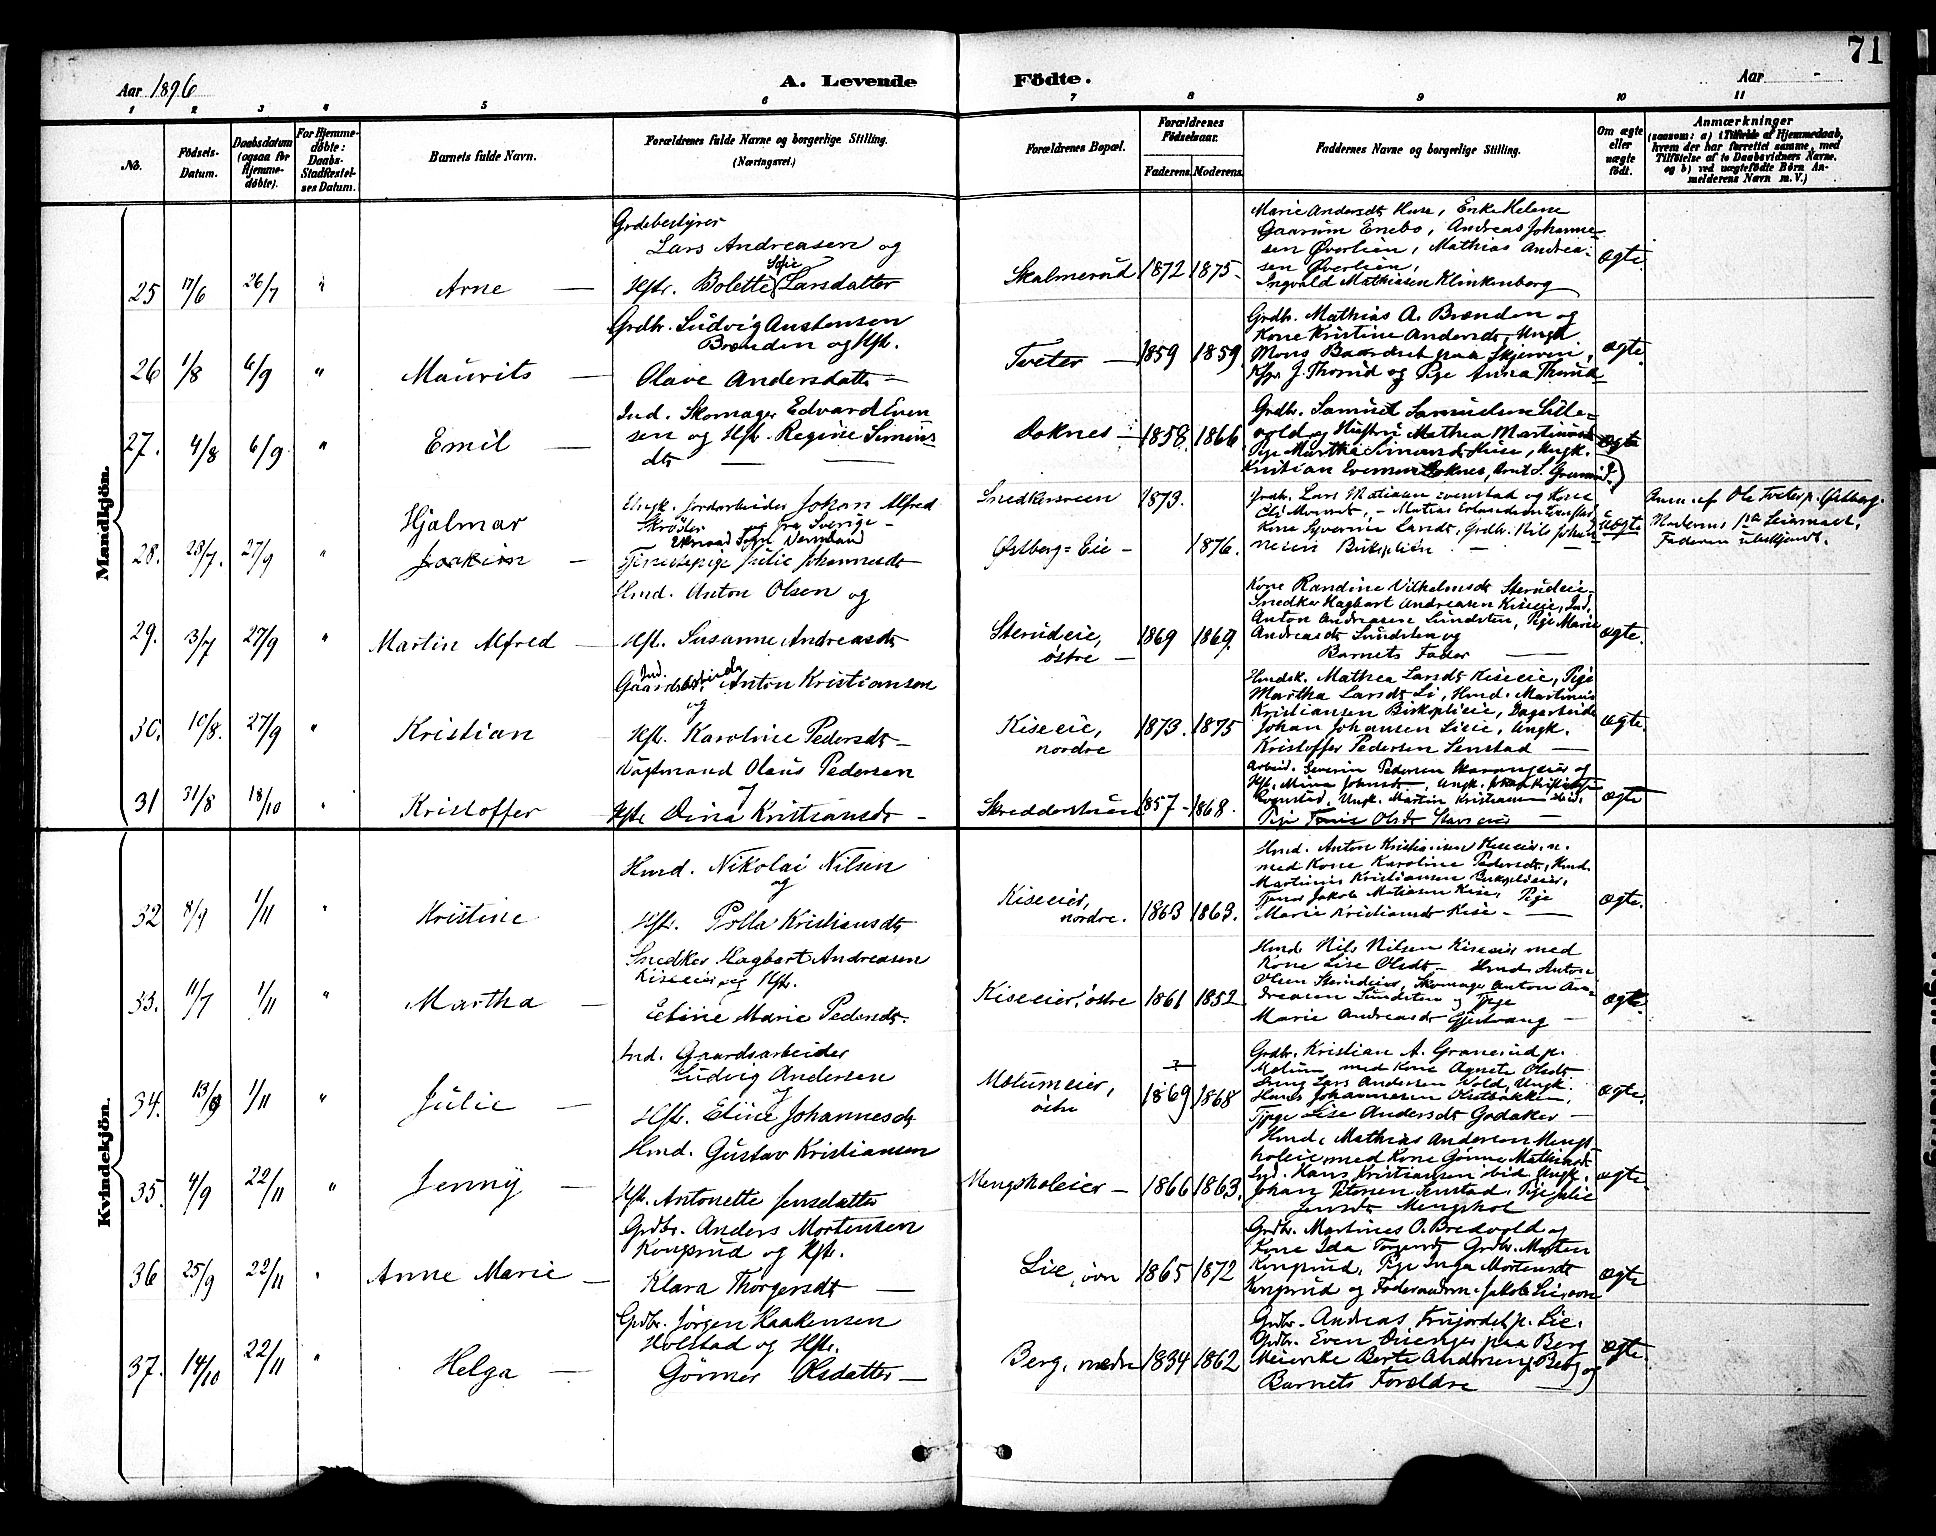 71
Aar 1896
A. Levende
Födte.
Aar
1 2 3 4 5 6 7 8 9 10 11
No.
Födsels-
Datum.
Daabsdatum
(ogsaa for
Hjemme-
döbte).
For Hjemme-
döbte:
Daabs-
Stadfæstel-
ses Datum.
Barnets fulde Navn.
Forældrenes fulde Navne og borgerlige Stilling.
(Næringsvei.)
Forældrenes Bopæl.
Forældrenes
Födselsaar.
Faderens. Moderens.
Faddernes Navne og borgerlige Stilling.
Om ægte
eller
uægte
födt.
Anmærkninger
(saasom: a) i Tilfælde af Hjemmedaab,
hvem der har forrettet samme, med
Tilföielse af to Daabsvidners Navne,
og b) ved uægtefödte Börn An-
melderens Navn m. V.)
Mandkjön.
25 17/6 26/7 " Arne
Grdebestyrer
Lars Andreasen og
Sofie
Hstr. Bolette Larsdatter
Skalmerud 1872 1875
Marie Andersdt Huse, Enke Helene
Gaarum Enebo, Andreas Johanne-
sen Øverlien, Mathias Andrea-
sen Øverlien,
Ingvald Mathiasen Klinkenberg
ægte
26 1/8 6/9 " Maurits
Grdbr. Ludvig Austensen
Brænden og Hst.
Olave Andersdatt
Tveter 1859 1859
Grdb. Mathias A. Brænden og
Kone Kristine Andersdt, Ungk.
Mons Baardset paa Skjerven,
J. Thorud og Pige Anna Thorud
ægte
27. 4/8 6/9 " Emil
Ind. Skomager Edvard Even
sen og Hst. Regine Simens
dt
Doknes 1858. 1866
Grdb. Samuel Samuelsen Lille-
vold og Hustru Mathea Martinusd
Pige Marthe Simensd Huse, Ungk.
Kristian Evensen Doknes,
ægte
28. 28/7. 27/9 " Hjalmar
Joakim
Ungk. Jordarbeider Johan Alfred
og fra Sverige
Sogn Vermland
Tjenestepige Julie Johannesdt
Snedkersveen 1873.
Østberg=Eie 1876.
Grdb. Lars Matiasen Evenstad og Kone
Kone Syverine Larsdt, Grdbr. Nils Johan
nesen Biskoplien
uægte
Anm. af Ole Tveter p. Østberg.
Moderens 1ste Leiermaal,
Faderen ubekjendt.
29. 3/7 27/9 " Martin Alfred
Hmd. Anton Olsen og
Hst. Susanne Andreasdt
Sterudeie,
østre
1869 1869.
Kone Randine Vilhelmsdt Sterudeie
Snedker Hagbart Andreasen Kiseeie, Ind.
Anton Andreasen Lundsten, Pige Marie
Andreasdt Lundsten og
Barnets Fader
ægte
30. 10/8. 27/9 " Kristian
Ind.
Gaardsarbeider Anton Kristiansen
og
Hst. Karoline Pedersdt
Kiseeie,
nordre
1873. 1875
Hmdsk. Mathea Larsdt Kiseeie, Pige
Martha Larsdt Li, Hmd. Martinus
Kristiansen Biskoplieie, Dagarbeider
Johan Johansen Lieie, Ungk.
Kristoffer Pedersen Senstad
ægte
31 31/8 18/10 " Kristoffer
Vægtmand Olaus Pedersen
og
Hst. Dina Kristiansdt
Skredderstuen 1857 1868.
Arbeid. Severin Pedersen og
Hst. Mina Johnsdt, Ungk.
Evenstad, Ungk. Martin Kristiansen
Pige Olsdt
ægte
Kvindekjön.
32 8/9 1/11 " Kristine
Hmd. Nikolai Nilsen
og
Hst. Polla Kristiansdt
Kiseeier,
nordre.
1863 1863.
Hmd. Anton Kristiansen Kiseeier n.
med Kone Karoline Pedersdt, Hmd.
Martinus Kristiansen Biskoplieeier,
Tjener Jakob Matiasen Kise, Pige
Marie Kristiansdt Kise
ægte.
33. 11/7 1/11 " Martha
Snedker Hagbart Andreasen
Kiseeier og Hst.
Eline Marie Pedersdt.
Kiseeier, østre 1861 1852
Hmd Nils Nilsen Kiseeier med
Kone Lise Olsdt Hmd. Anton
Olsen Sterudeier, Skomager Anton An-
dreasen Lundsten og Pige
Marie Andreasdt Gjestvang
ægte.
34. 13/9 1/11 " Julie
Ind. Gaardsarbeider
Ludvig Andersen
og
Hst. Eline Johannesdt
Molumeier,
østre
1869 1868
Grdbr. Kristian A. Granerud p.
Molum med Kone Agnete Olsdt
Lars Andersen Vold, Ungk.
Hans Johannesen
Pige Lise Andersdt Godaker
ægte.
35. 4/9 22/11 " Jenny
Hmd. Gustav Kristiansen
Hst. Antonette Jensdatter
Mengsholeier 1866 1863.
Hmd. Mathias Andersen Mengs
holeie, med Kone Gønner Mathisdt
Ind. Hans Kristiansen ibid. Ungk.
Johan Petersen Senstad, Pige Julie
Jensdt Mengshol
ægte
36 25/9 22/11 " Anne Marie
Grdbr. Anders Mortensen
Konprud og Hst.
Klara Thorgersdt
Lie, øvre 1865 1872
Grdbr. Martines O. Bredvold og
Kone Ida Torgersdt Grdbr. Morten
Konprud, Pige Inga Mortensdt
Konprud og Føderaadsm. Jakob Lie, øvre
ægte
37. 14/10 22/11 " Helga
Grdbr. Jørgen Haakensen
Holstad og Hst.
Gønner Olsdatter
Berg, nedre 1834 1862
Grdbr. Andreas Frujordet p. Lie.
Grdbr. Even Disenger paa Berg
Meierske Berte Andersen, Berg og
Barnets Forældre
ægte.